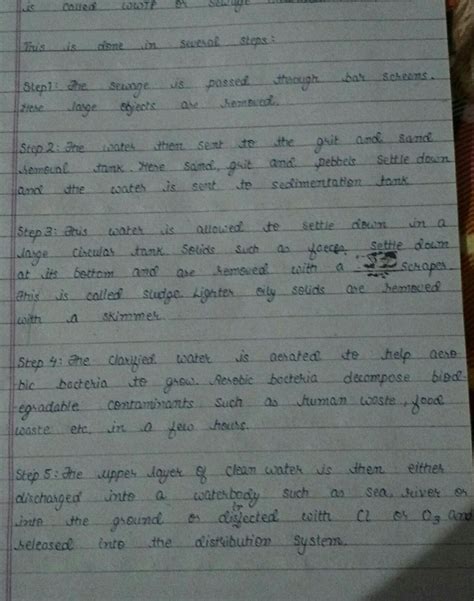 is called WWTP or sewage
This is done in several steps:
Step1: The sewage is passed through bar screens.
Here large objects are removed.
Step 2: The water then sent to the grit and sand
removal tank. Here sand, grit and pebbels settle down
and the water is sent to sedimentation tank
Step 3: This water is allowed to settle down in a
large circular tank. Solids such as faeces settle down
at its bottom and are removed with a scraper.
This is called sludge. Lighter oily solids are removed
with a skimmer.
Step 4: The clarified water is aerated to help aero
bic bacteria to grow. Aerobic bacteria decompose biod
-egradable contaminants such as human waste, food
waste etc. in a few hours.
Step 5: The upper layer of clean water is then either
discharged into a waterbody such as sea, river or
into the ground or disjected with Cl or O3 and
released into the distribution system.